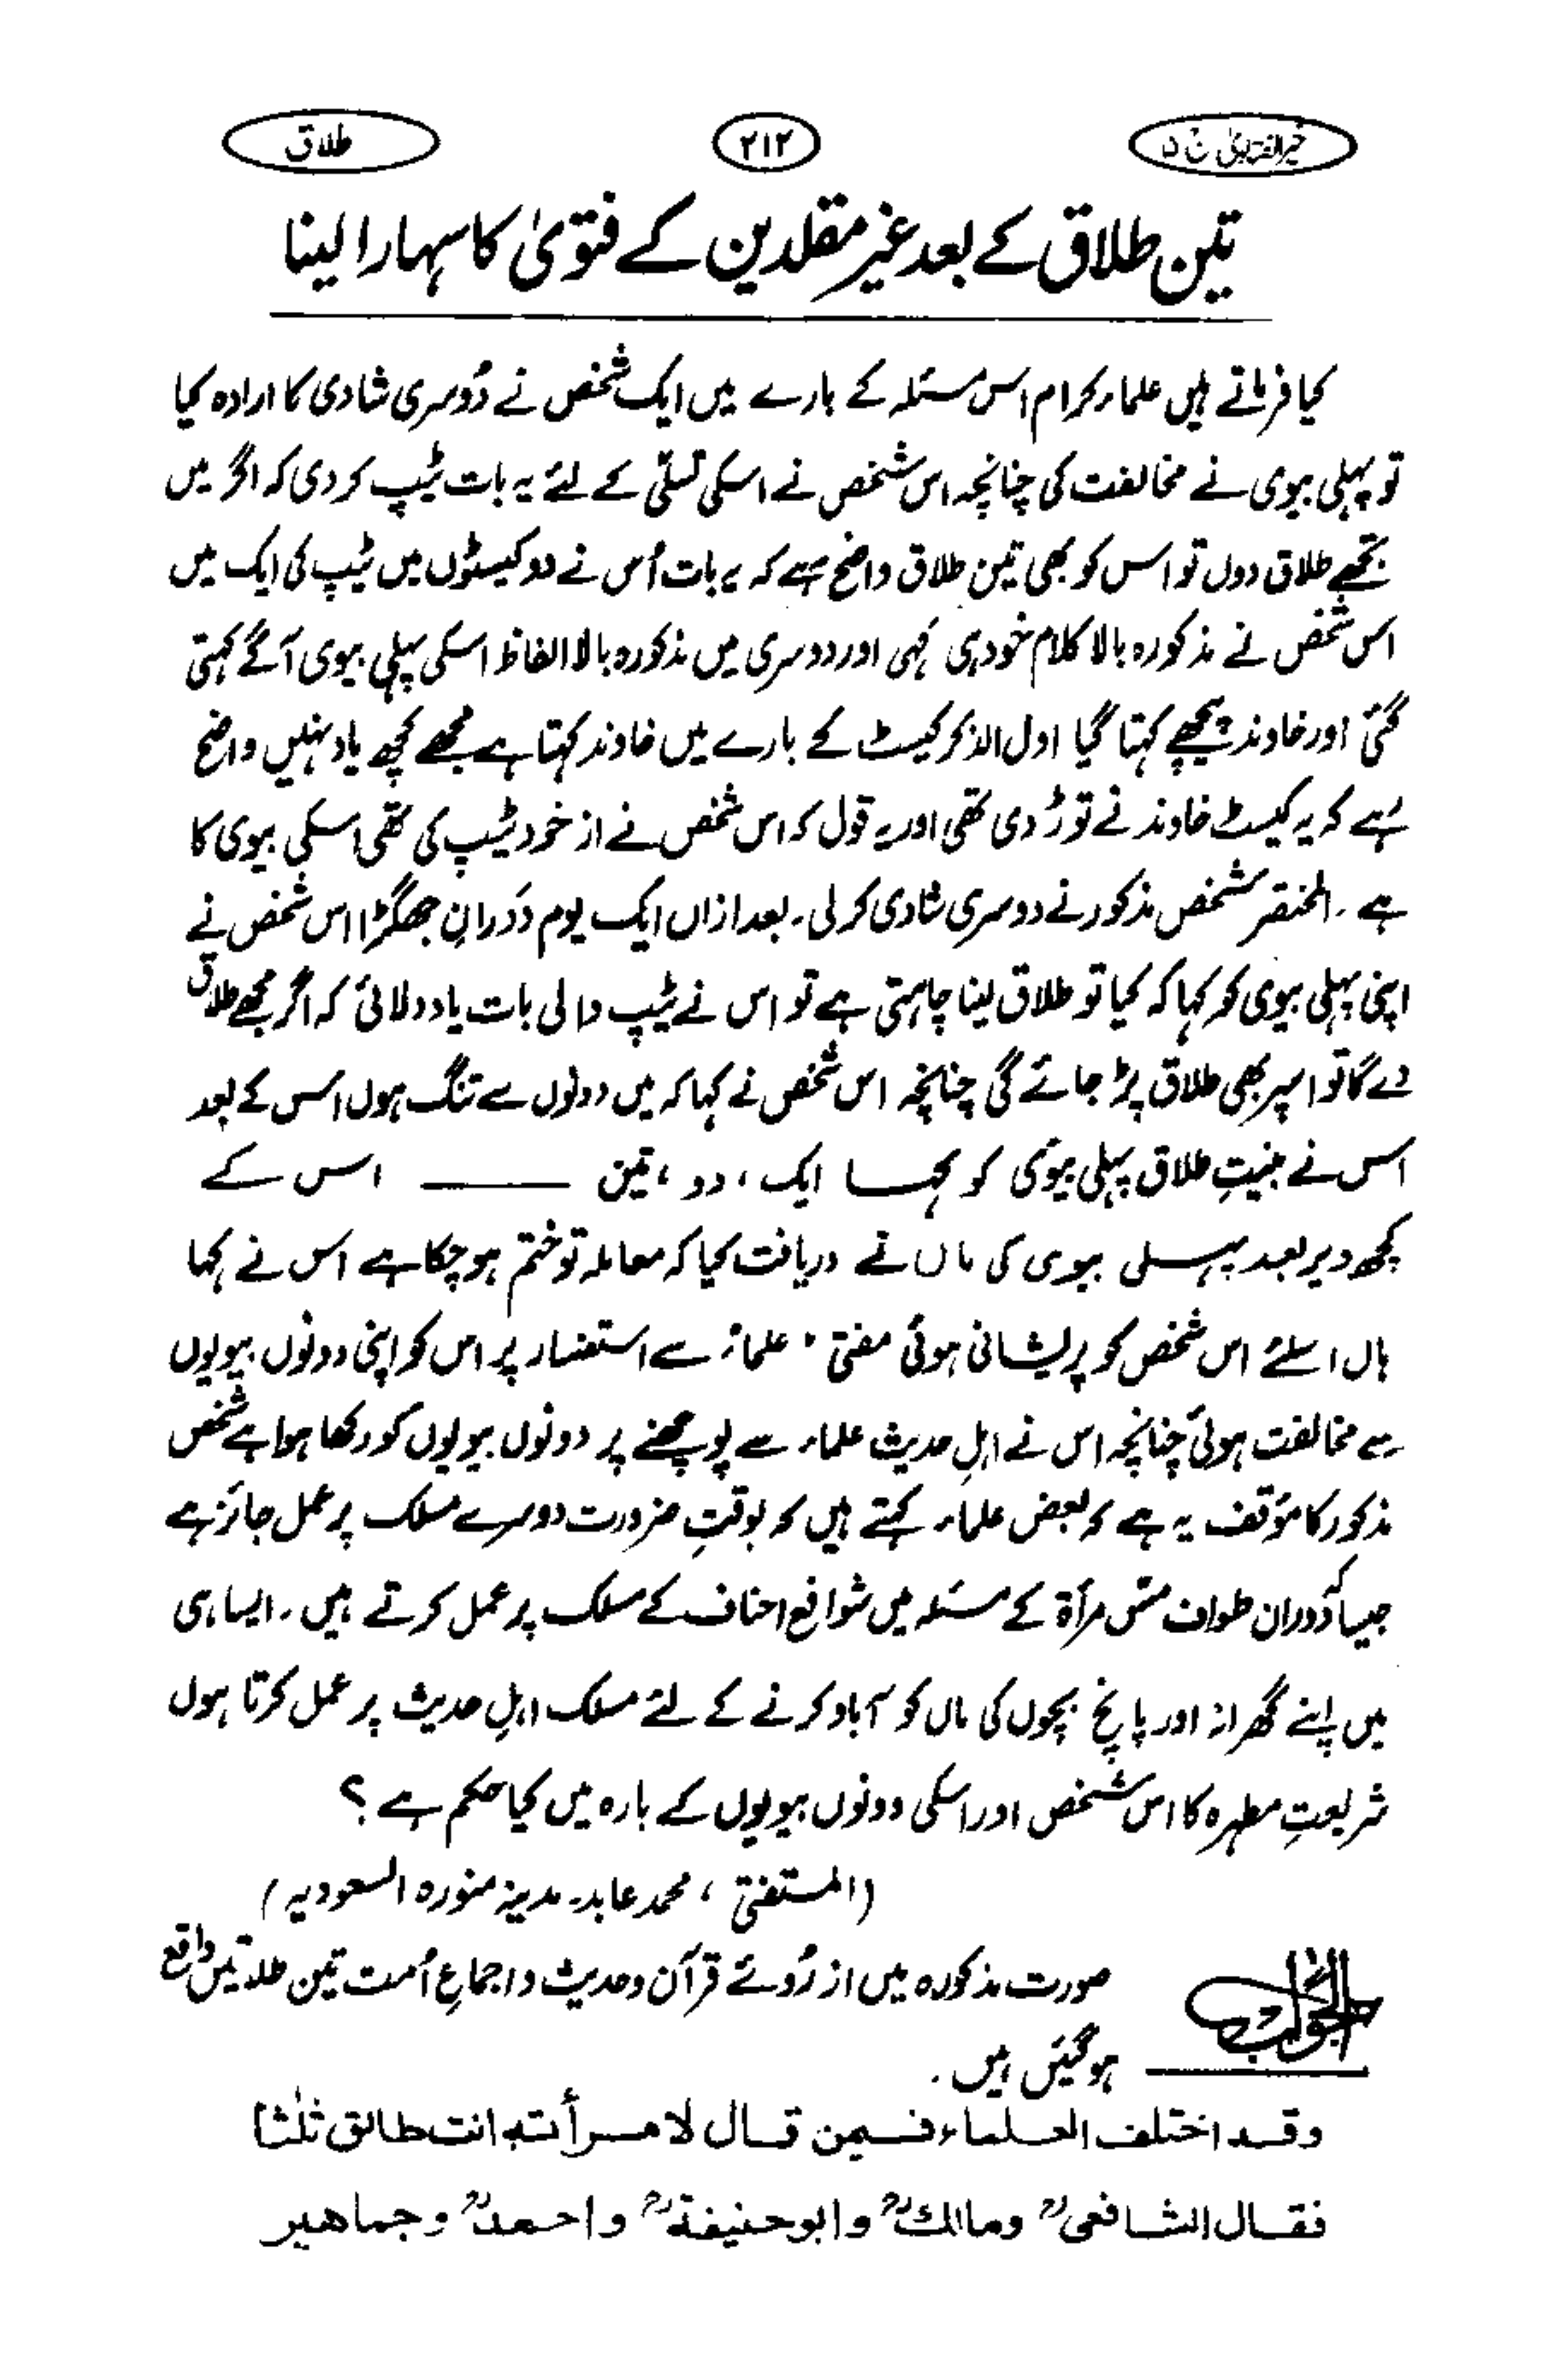 خیر الفتاویٰ ج ۵ ۲۱۲ طلاق
تین طلاق کے بعد غیر مقلدین کے فتویٰ کا سہارا لینا
کیا فرماتے ہیں علماء کرام اس مسئلہ کے بارے میں ایک شخص نے دُوسری شادی کا ارادہ کیا
تو پہلی بیوی نے مخالفت کی چنانچہ اس شخص نے اسکی تسلّی کے لئے یہ بات ٹیپ کر دی کہ اگر میں
تجھے طلاق دوں تو اس کو بھی تین طلاق واضح ہے کہ یہ بات اُس نے دو کیسٹوں میں ٹیپ کی ایک میں
اس شخص نے مذکورہ بالا کلام خود ہی کہی اور دوسری میں مذکورہ بالا الفاظ اسکی پہلی بیوی آگے کہتی
گئی اور خاوند پیچھے کہتا گیا اول الذکر کیسٹ کے بارے میں خاوند کہتا ہے مجھے کچھ یاد نہیں واضح
ہے کہ یہ کیسٹ خاوند نے توڑ دی تھی اور یہ قول کہ اس شخص نے از خود ٹیپ کی تھی اسکی بیوی کا
ہے ۔ المختصر شخص مذکور نے دوسری شادی کر لی ۔ بعد ازاں ایک یوم دَورانِ جھگڑا اس شخص نے
اپنی پہلی بیوی کو کہا کہ کیا تو طلاق لینا چاہتی ہے تو اس نے ٹیپ والی بات یاد دلائی کہ اگر مجھے طلاق
دے گا تو اسپر بھی طلاق پڑ جائے گی چنانچہ اس شخص نے کہا کہ میں دونوں سے تنگ ہوں اس کے بعد
اس نے بنیتِ طلاق پہلی بیوی کو کہا ایک ، دو ، تین ——— اس کے
کچھ دیر بعد پہلی بیوی کی ماں نے دریافت کیا کہ معاملہ تو ختم ہو چکا ہے اس نے کہا
ہاں اسلئے اس شخص کو پریشانی ہوئی مفتی ، علماء سے استفسار پر اس کو اپنی دونوں بیویوں
سے مخالفت ہوئی چنانچہ اس نے اہلِ حدیث علماء سے پوچھنے پر دونوں بیویوں کو رکھا ہوا ہے شخص
مذکور کا مؤقف یہ ہے کہ بعض علماء کہتے ہیں کہ بوقتِ ضرورت دوسرے مسلک پر عمل جائز ہے
جیسا کہ دَوران طواف مسّ مرأۃ کے مسئلہ میں شوافع احناف کے مسلک پر عمل کرتے ہیں ۔ ایسا ہی
میں اپنے گھرانہ اور پانچ بچوں کی ماں کو آباد کرنے کے لئے مسلک اہلِ حدیث پر عمل کرتا ہوں
شریعتِ مطہرہ کا اس شخص اور اسکی دونوں بیویوں کے بارہ میں کیا حکم ہے ؟
(المستفتی ، محمد عابد۔ مدینہ منورہ السعودیہ)
الجواب صورت مذکورہ میں از رُوئے قرآن و حدیث و اجماعِ اُمت تین طلاقیں واقع
ہو گئیں ہیں ۔
وقد اختلف العلماء فیمن قال لامرأته انت طالق ثلٰثا
فقال الشافعیؒ ومالکؒ وابوحنیفةؒ واحمدؒ وجماهیر